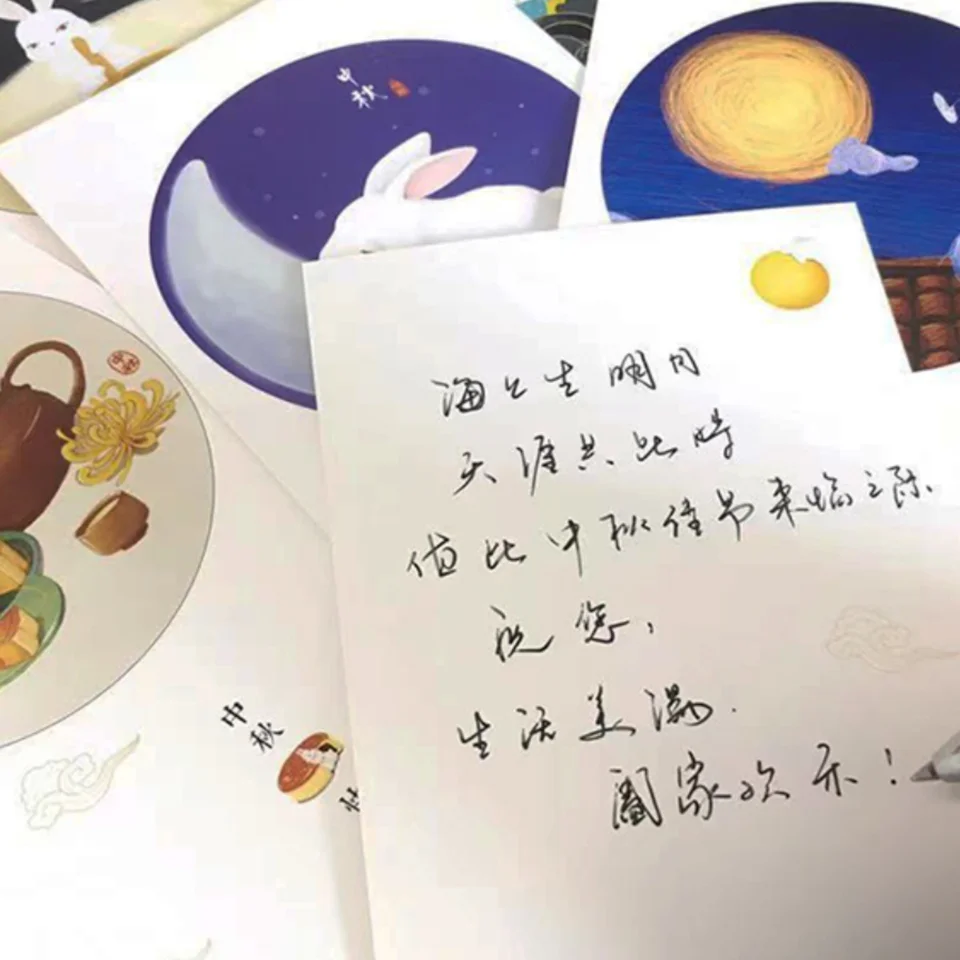 中秋
海上生明月
天涯共此时
值此中秋佳节来临之际
祝您,
生活美满.
阖家欢乐!
中秋